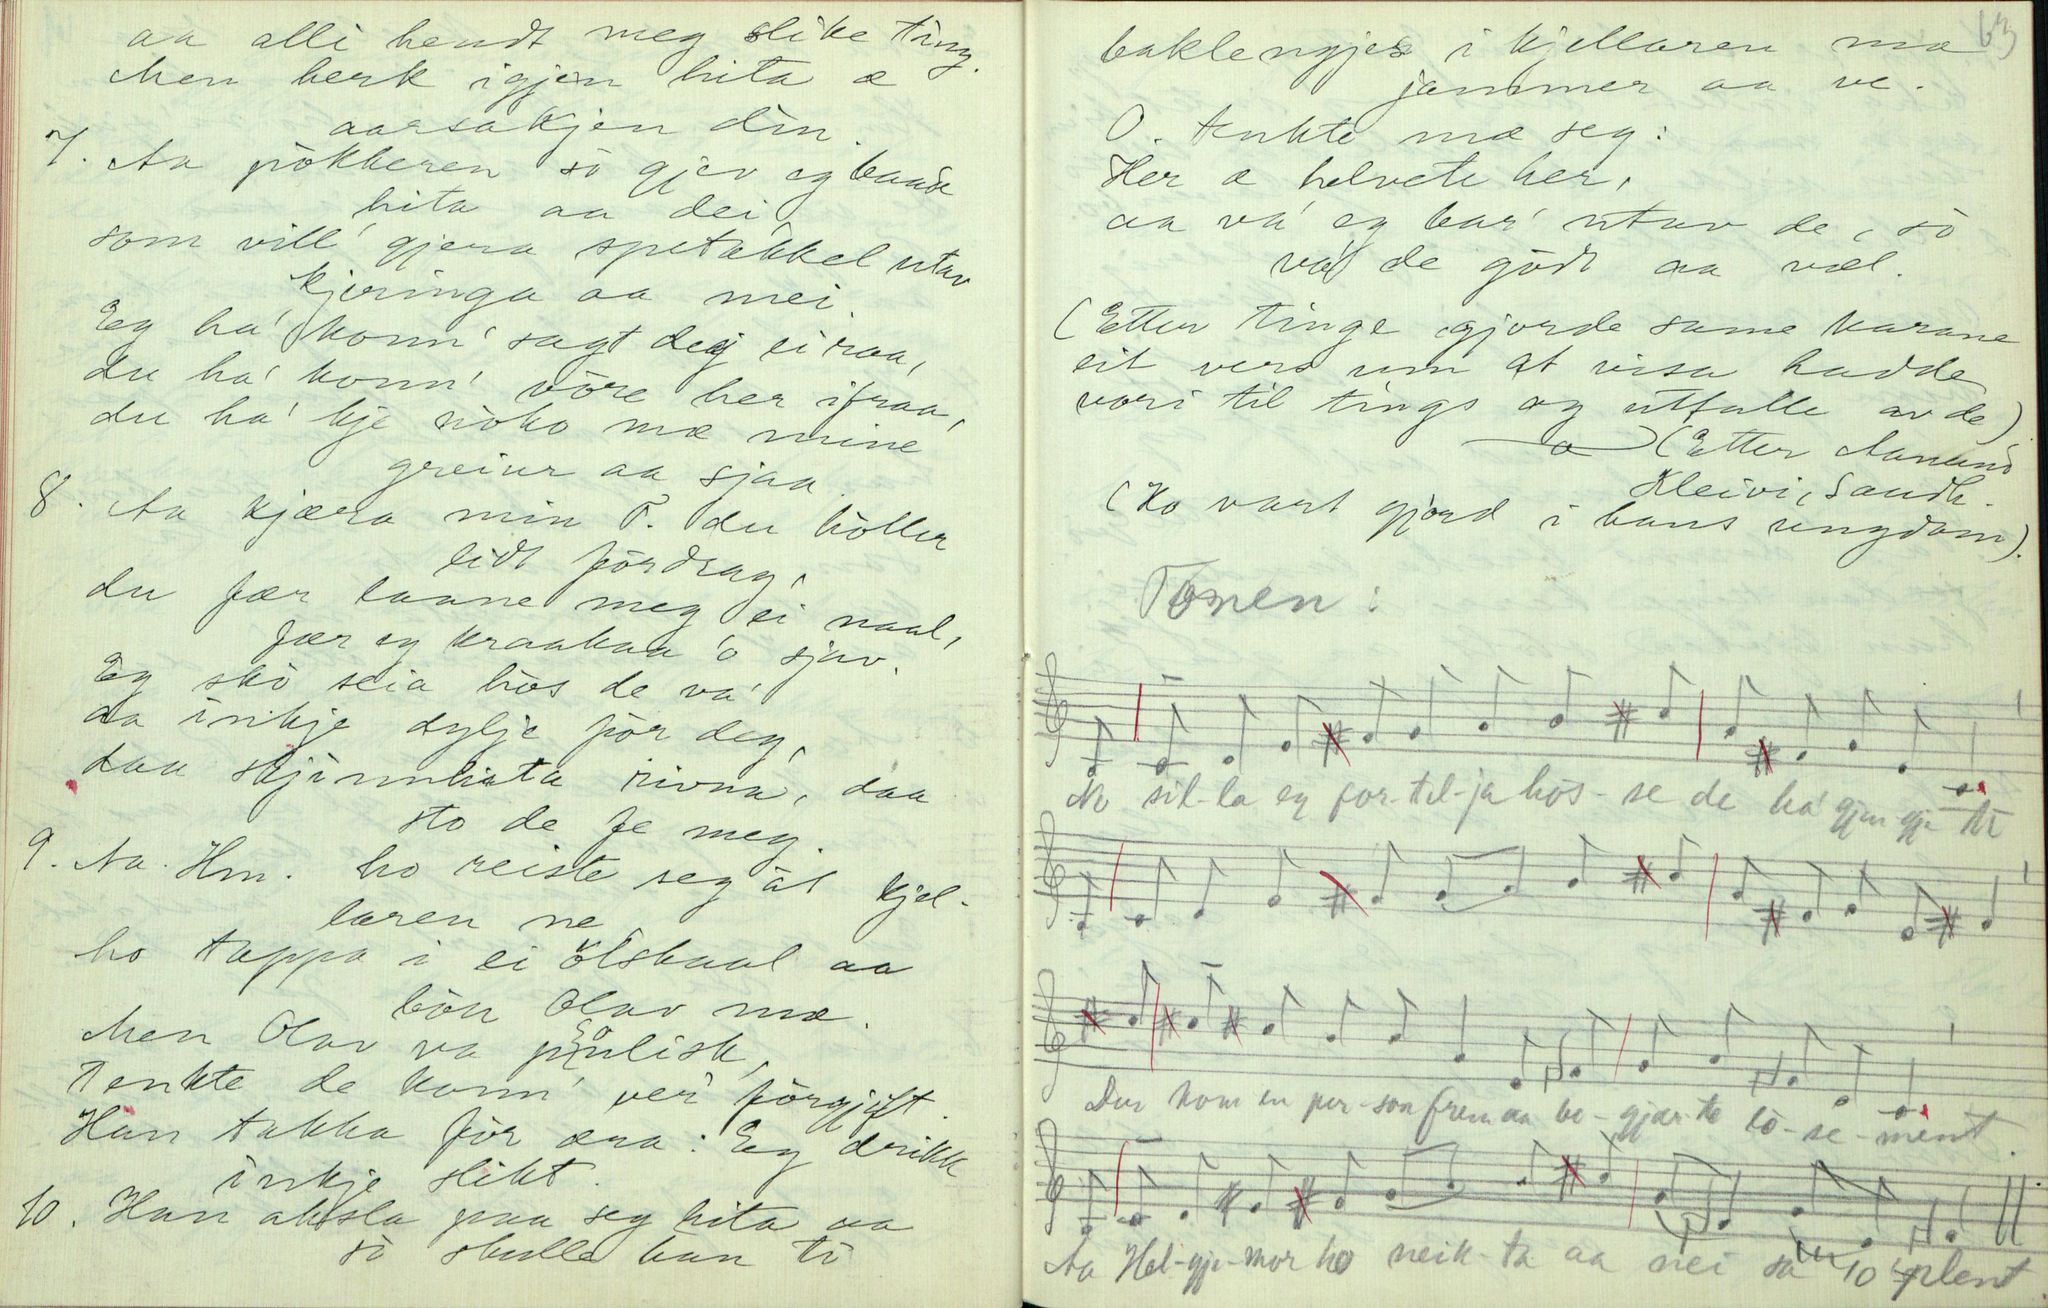 aa alli hendt meg slike ting.
Men herk igjen hita æ
aarsakjen din.
7. Aa pokkeren so gjev eg baade
hita aa dei,
som vill' gjera spetakkel utav
kjeringa aa mei.
Eg ha' konn' sagt deg ei raa,
du ha' konn' vore her ifraa,
du ha' kje noko mæ mine
greiur aa sjaa.
8. Aa kjæra min T. du holler
lidt fordrag,
du fær laane meg ei naal,
fær eg kraakaa o sjav.
Eg sko seia hos de va'
aa inkje dylje for deg,
daa skjinnhita rivna, daa
sto de fe meg.
9. Aa Hm. ho reiste seg åt kjel-
laren ne,
ho tappa i ei ølskaal aa
bou Olav mæ.
Men Olav va polisk,
Tenkte de konn' ver' forgjift.
Han takka for æra: Eg drikk
inkje slikt.
10. Han aksla paa seg hita aa
so skulle han te
63
baklengjes i kjellaren mæ
jammer aa ve.
O. tenkte mæ seg:
Her æ helvete her,
aa va' eg bar' utav de, so
va' de godt aa væl.
(Etter tinge gjorde same karane
eit vers um at visa hadde
vori til tings og utfalle av de)
(Etter Aanund
Kleivi, Saudh.
(Ho vart gjord i hans ungdom).
Tonen:
No sil-la eg for-tel-ja hos-se de ha' gjen-gje te
Der kom en per-son frem aa be-gjær-te lo-se-ment
Aa Hel-gje-mor ho neik-ta aa nei sa 10 plent